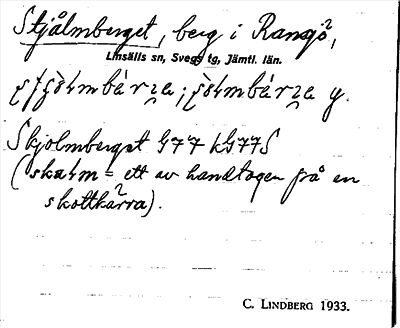 Stjålmberget, berg i Rangsö,
Linsälls sn, Svegs tg, Jämtl. län.
y.
Skjolmberget G77 kG77S
(skaɫm = ett av handtagen på en
skottkärra).
C. LINDBERG 1933.